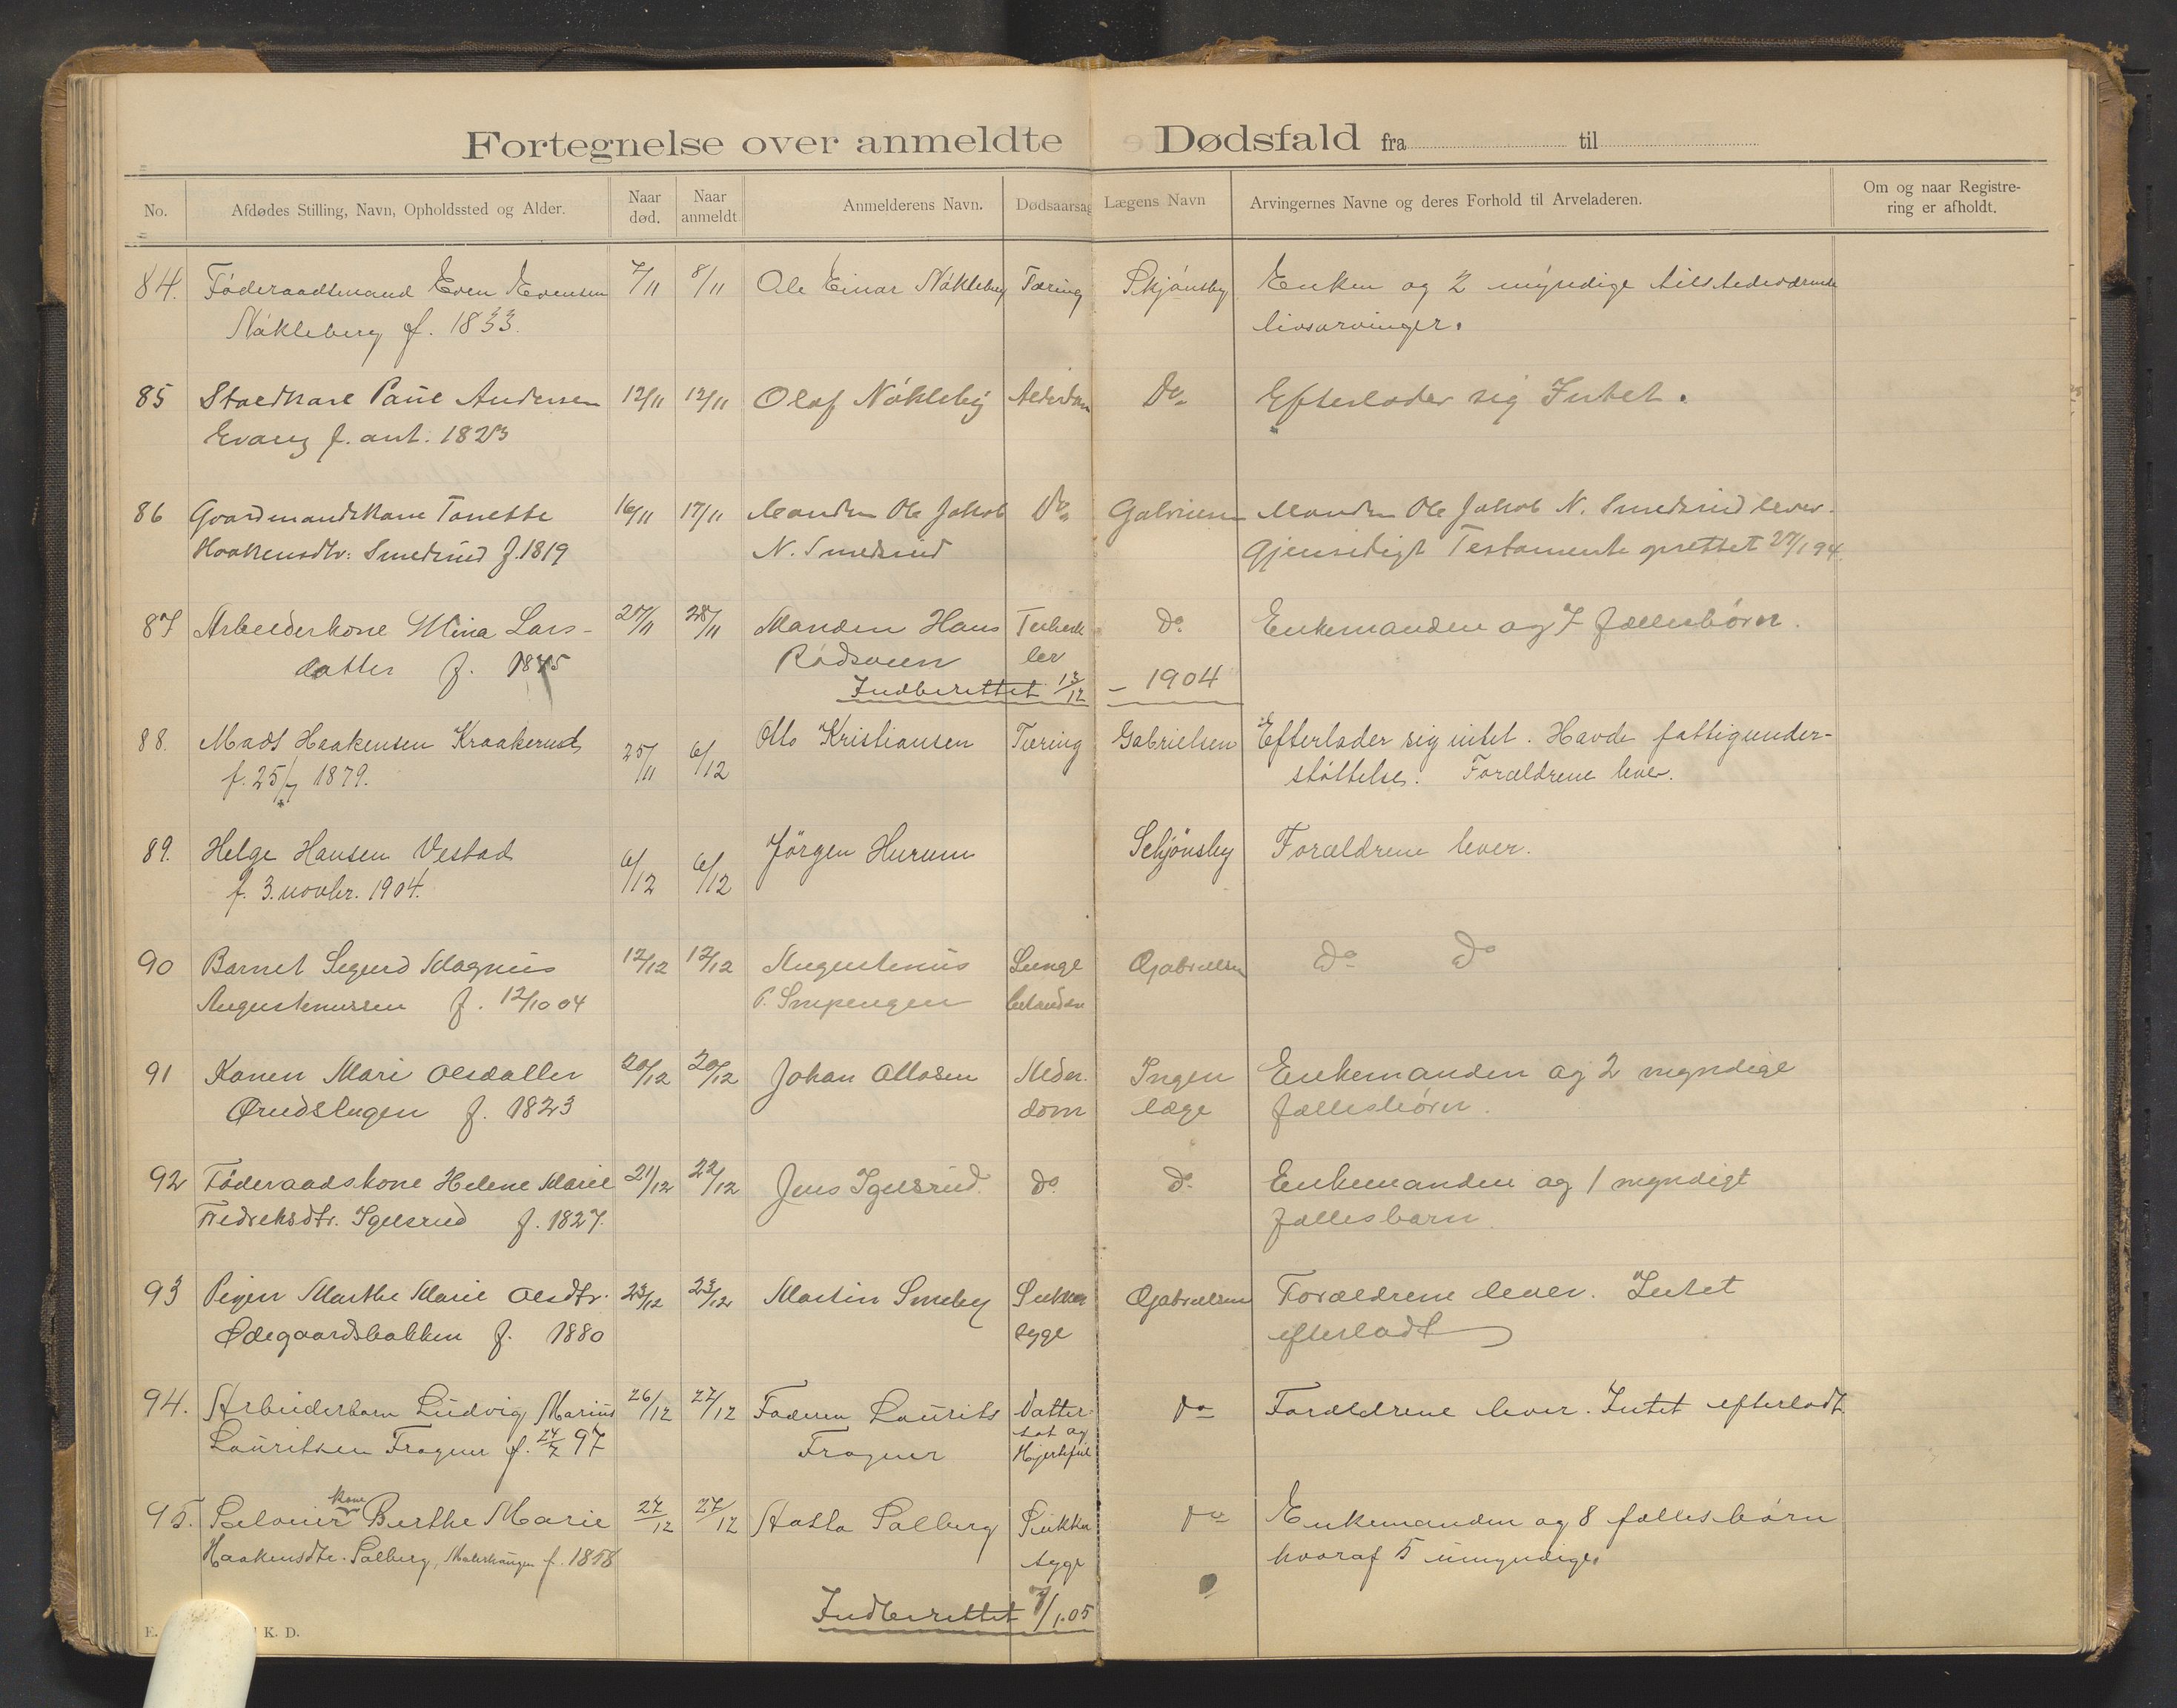 Fortegnelse over anmeldte Dødsfald fra til
No. Afdødes Stilling, Navn, Opholdssted og Alder. Naar død. Naar anmeldt Anmelderens Navn. Dødsaarsag Lægens Navn Arvingernes Navne og deres Forhold til Arveladeren. Om og naar Registrering er afholdt.
84. Föderaadsmand Even Evensen 7/11 8/11 Ole Einar Nökleby Tæring Skjönsby Enken og 2 myndige tilstedeværende
Nökleberg f. 1833. livsarvinger.
85 Paul Andersen 12/11 12/11 Olaf Nökleby Alderdom Do Efterlader sig Intet.
Evang f. ant. 1823
86 Gaardmandskone Tonette 16/11 17/11 Manden Ole Jakob Do Gabrielsen Manden Ole Jakob N. Smedsrud lever.
Haakensdtr. Smedsrud f. 1819 N. Smedsrud Gjensidigt Testamente oprettet 27/1 94.
87 Arbeiderkone Mina Lars- 27/11 28/11 Manden Hans Tuberk do Enkemanden og 7 fællesbörn.
datter f. 1845 Rödsveen ler
Indberettet 13/12 - 1904
88. Mads Haakensen Kraakerud 25/11 6/12 Otto Kristiansen Tæring Gabrielsen Efterlader sig intet. Havde fattigunder-
f. 25/7 1879. støttelse. Forældrene lever.
89. Helge Hansen Vestad 6/12 6/12 Jörgen Hurum Schjönsby Forældrene lever.
f. 3. novbr. 1904.
90 Barnet Sigurd Magnus 12/12 12/12 Augustinus Lunge Gabrielsen do do
Augustinussen f. 12/10 04 P.
91 Konen Mari Olsdatter 20/12 20/12 Johan Ottosen Alder- Ingen Enkemanden og 2 myndige
f. 1823 dom læge fællesbörn.
92 Föderaadskone Helene Marie 21/12 22/12 Jens Igelsrud do do Enkemanden og 1 myndigt
Fredriksdtr. Igelsrud f. 1827. fællesbarn.
93 Pigen Marthe Marie Olsdtr. 23/12 23/12 Martin Smeby Sukker Gabrielsen Forældrene lever. Intet
Ødegaardsbakken f. 1880 syge efterladt
94. Arbeiderbarn Ludvig Marius 26/12 27/12 Faderen Laurits Vatter- do Forældrene lever. Intet efterladt.
Lauritsen Fragner f. 24/7 97 Fragner sot og
Hjertefeil
95. kone Berthe Marie 27/12 27/12 Solberg Sukker do Enkemanden og 8 fællesbörn
Haakensdtr. Solberg, f. 1858 syge hvoraf 5 umyndige.
Indberettet 7/1.05
E. K. D.